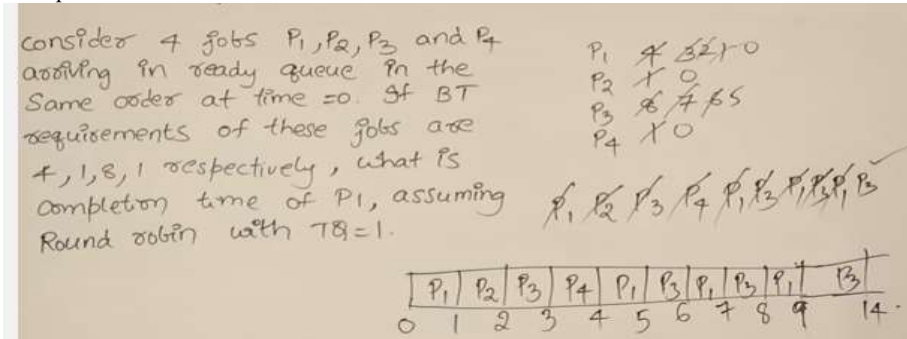 consider 4 jobs P1, P2, P3 and P4
arriving in ready queue in the
Same order at time =0. If BT
requirements of these jobs are
4,1,8,1 respectively, what is
completon time of P1, assuming
Round robin with TQ=1.
P1 4 3 2 1 0
P2 1 0
P3 8 7 6 5
P4 1 0
P1 P2 P3 P4 P1 P3 P1 P3 P1 P3 ✓
P1 P2 P3 P4 P1 P3 P1 P3 P1 P3
0 1 2 3 4 5 6 7 8 9 14.